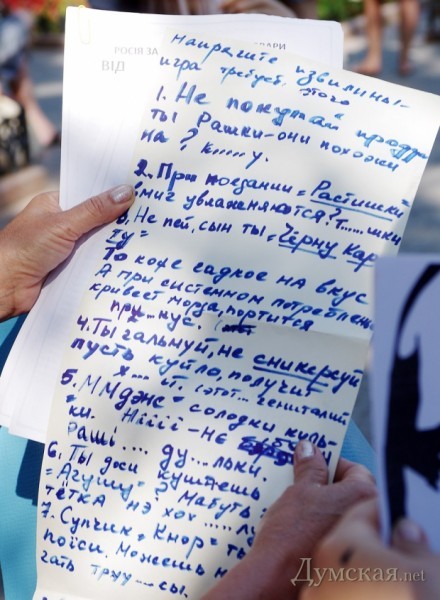 РОСІЯ ЗА
ВАРИ
ВІД
Напрягите извилины-
игра требует этого
1. Не покупай проду
ты Рашки-они похожи
на ? к.....у.
2. При поедании = Растишки
миг увлажняются? т......шки
3. Не пей, сын ты = Чёрну Кар
ту =
То коже садкое на вкус
А при системном потреблен
кривеет морда, портится
при..кус.
4. Ты гальнуй, не сникеруй
пусть куйло, получит
х.... й. (этот... гениталий
5. ММдэнс = солодки куль-
ки. Ніііі-не
Раші .... ду...льки.
6. Ты дои куштешь
= Агушу = ? Мабуть
тётка нэ хох.....лу
7. Супчик = Кнор = ты
поїси. Можешь н
гать труу---сы.
Думская.net